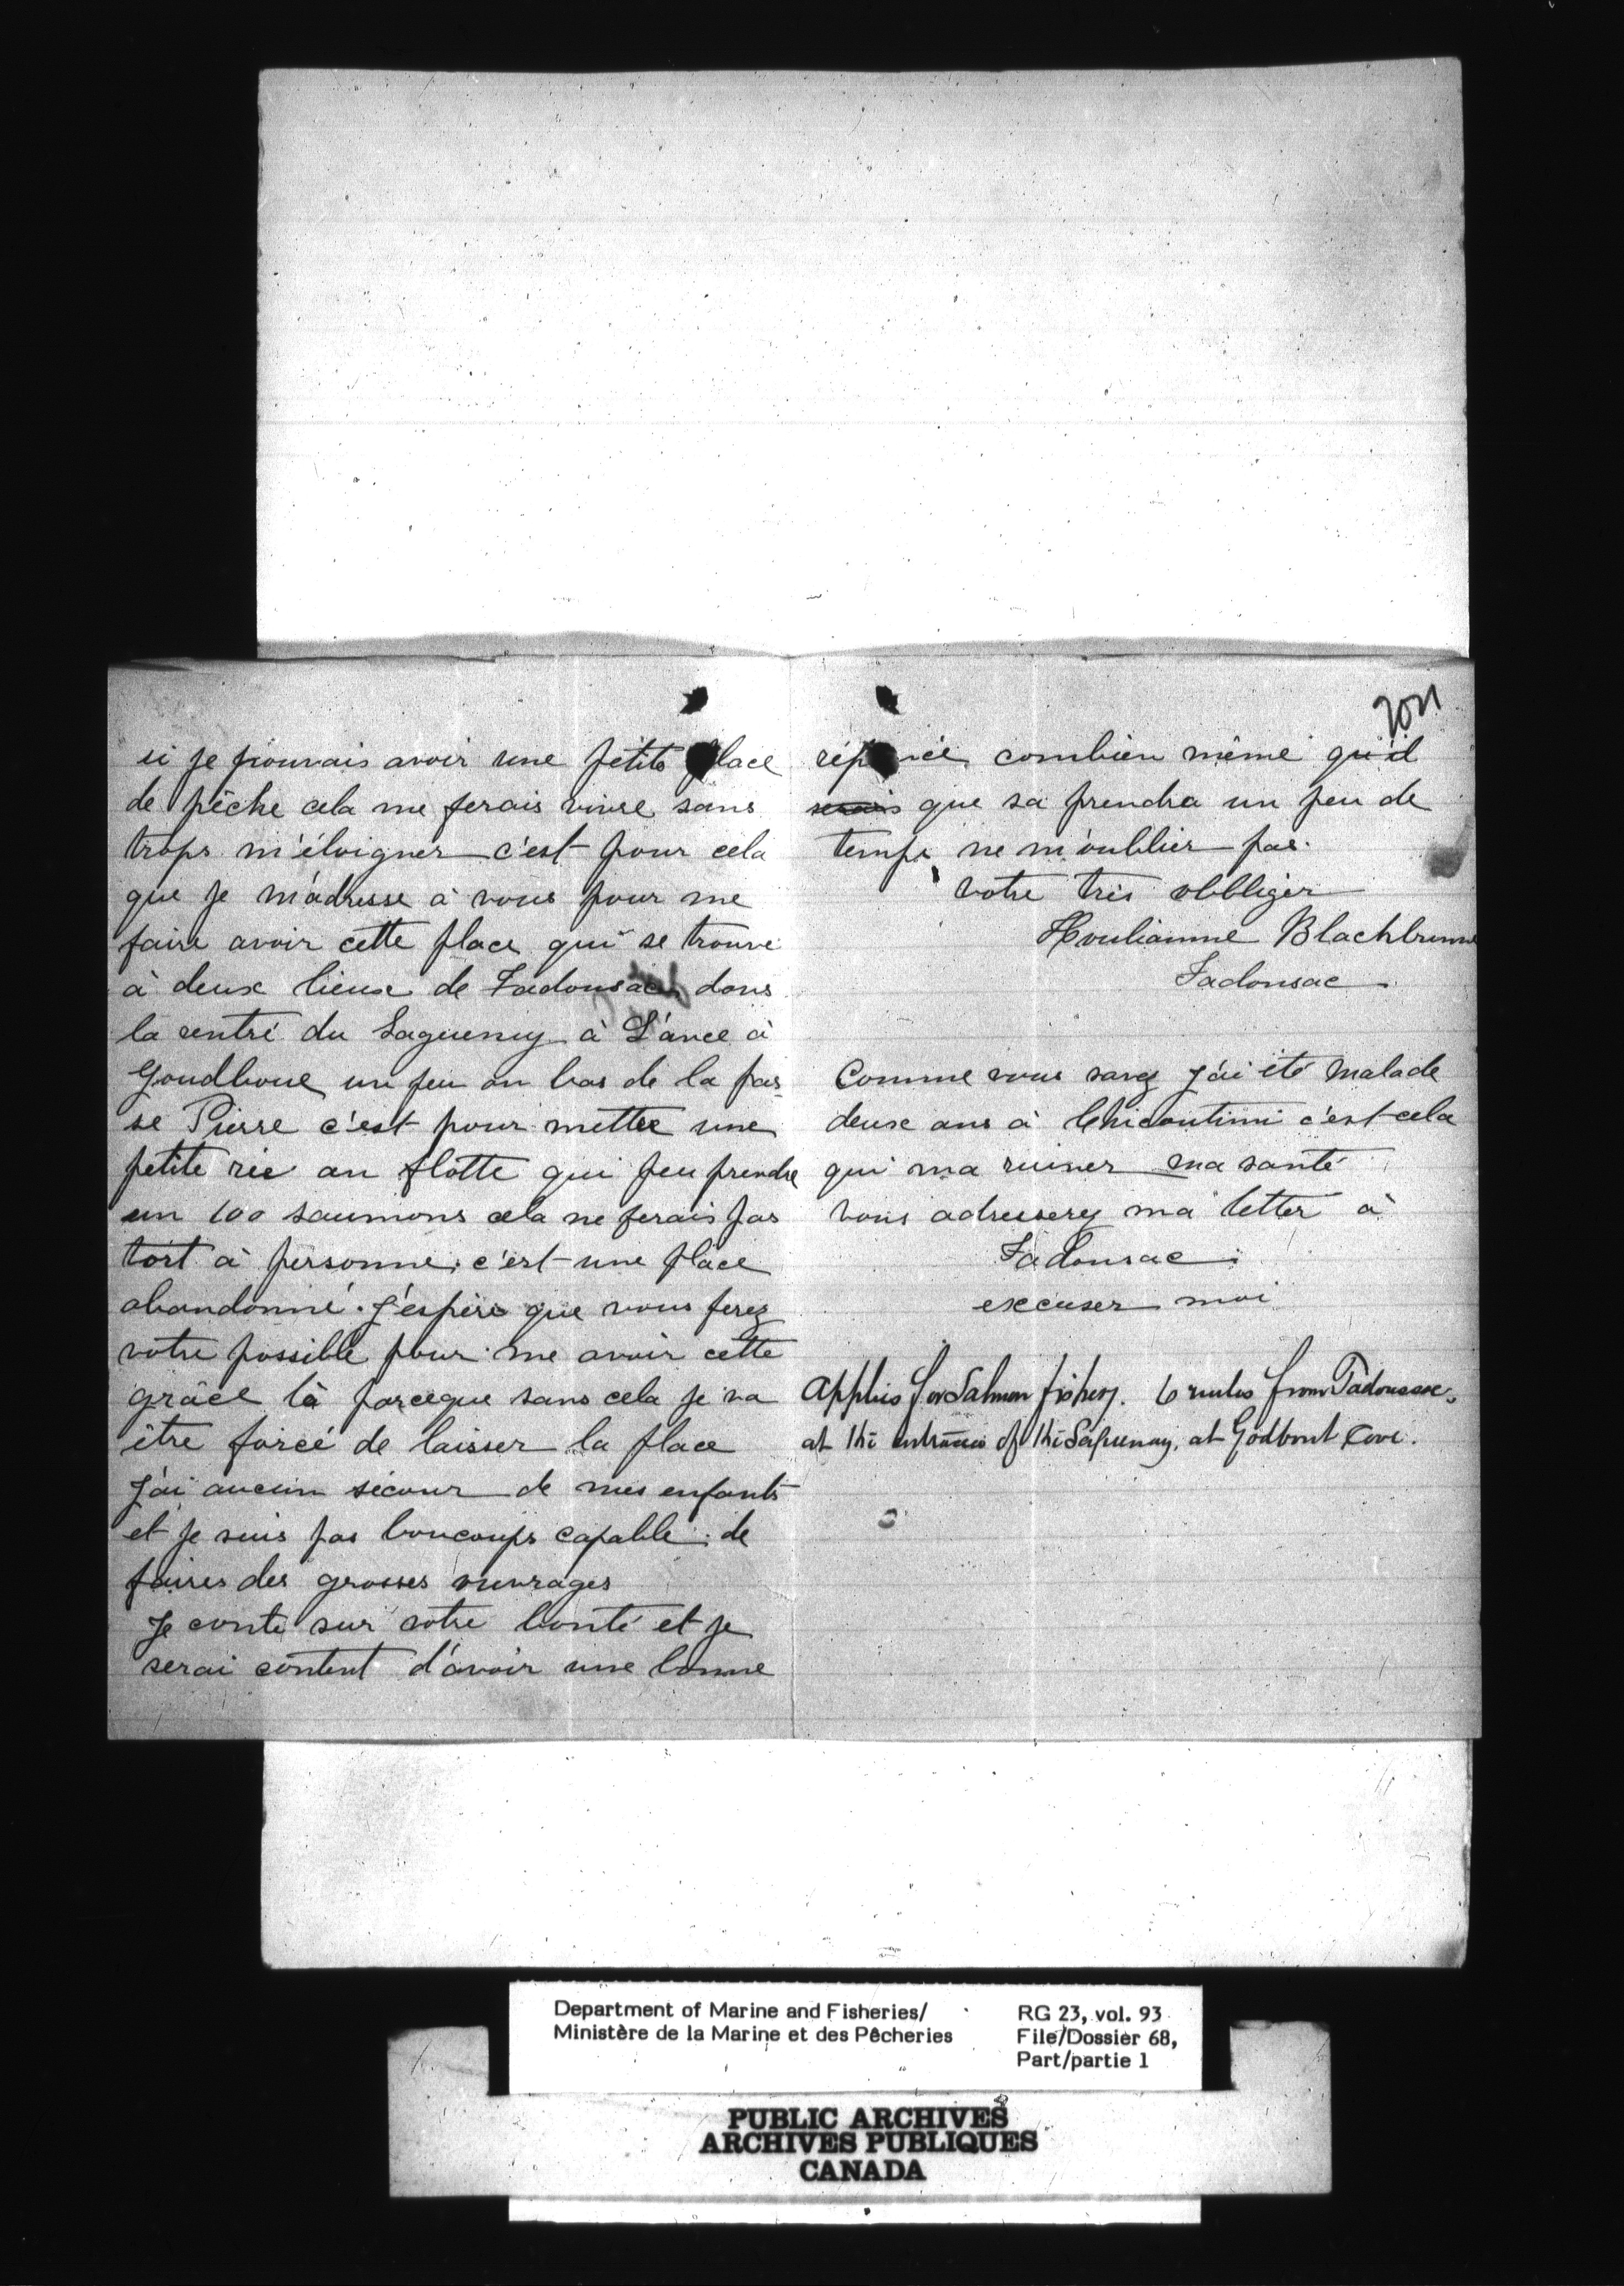 si je pouvais avoir une petite place
de pêche cela me ferais vivre sans
trops m'éloigner c'est pour cela
que je m'adresse à vous pour me
faire avoir cette place qui se trouve
à deux lieux de Tadousac dans
la rentré du Saguenay à L'ance à
Goudboue un peu au bas de la pas-
se Pierre c'est pour mettre une
petite rie au flotte qui peu prendre
un 100 saumons cela ne ferais pas
tort à personne, c'est une place
abandonné. J'espère que vous ferez
votre possible pour me avoir cette
grâce là parceque sans cela je va
être forcé de laisser la place
J'ai aucun sécour de mes enfants
et je suis pas boucoups capable de
faires des grosses ouvrages
Je conte sur votre bonté et je
serai content d'avoir une bonne
réponce combien même qu'il
serais que sa prendra un peu de
temps, ne m'oublier pas.
votre très obbliger
Houlianne Blachburne
Tadousac
Comme vous savez j'ai été malade
deux ans à Chicoutimi c'est cela
qui ma ruiner ma santé
vous adresserez ma letter à
Tadousac
excuser moi
Applies for Salmon fishery. 6 miles from Tadoussac,
at the entrance of the Saguenay, at Godbout Cove.
Department of Marine and Fisheries/
Ministère de la Marine et des Pêcheries
RG 23, vol. 93
File/Dossier 68,
Part/partie 1
PUBLIC ARCHIVES
ARCHIVES PUBLIQUES
CANADA